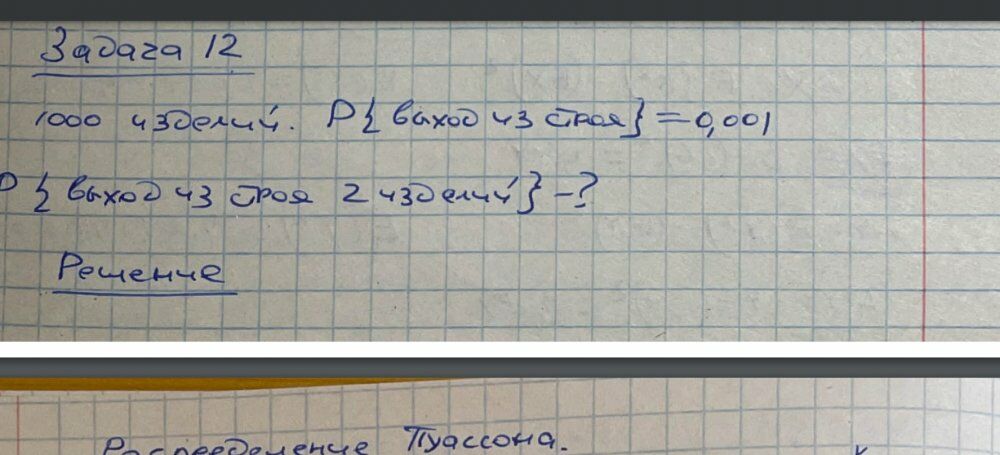 Задача 12
1000 изделий. P{выход из строя}=0,001
P{выход из строя 2 изделий}-?
Решение
Распределение Пуассона.